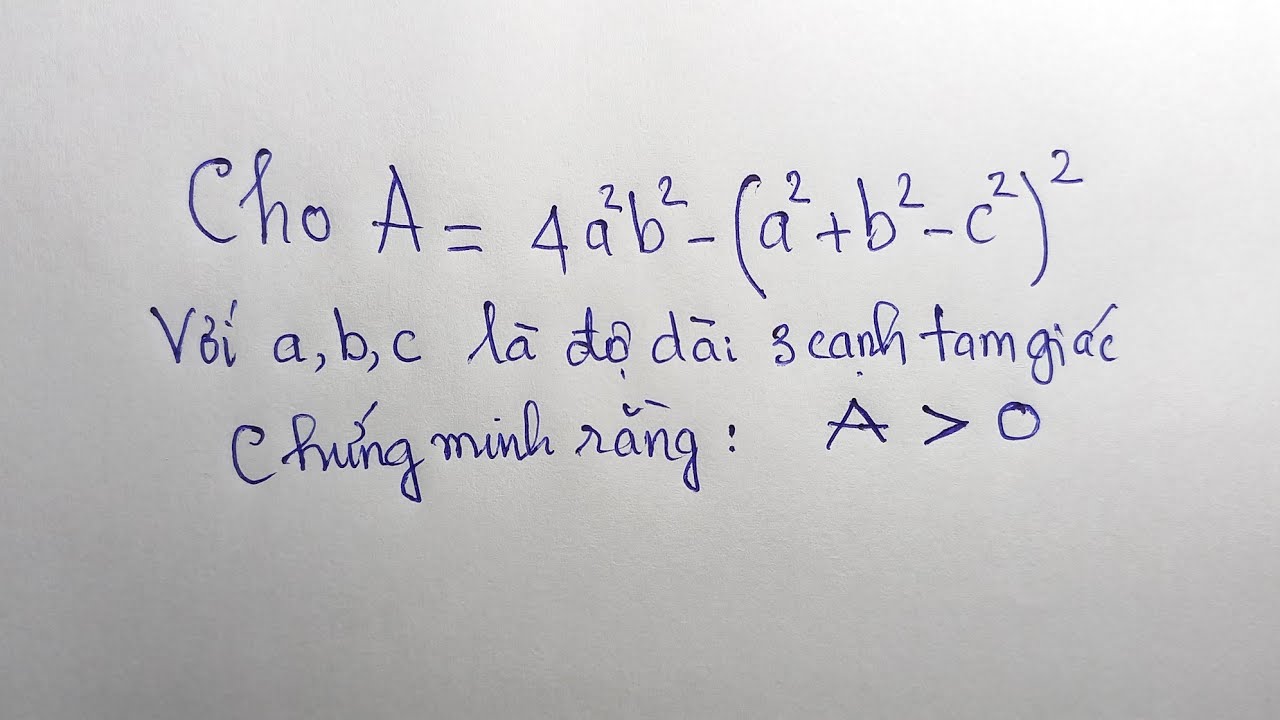 Cho A = 4a²b² - (a² + b² - c²)²
Với a, b, c là độ dài 3 cạnh tam giác
Chứng minh rằng : A > 0